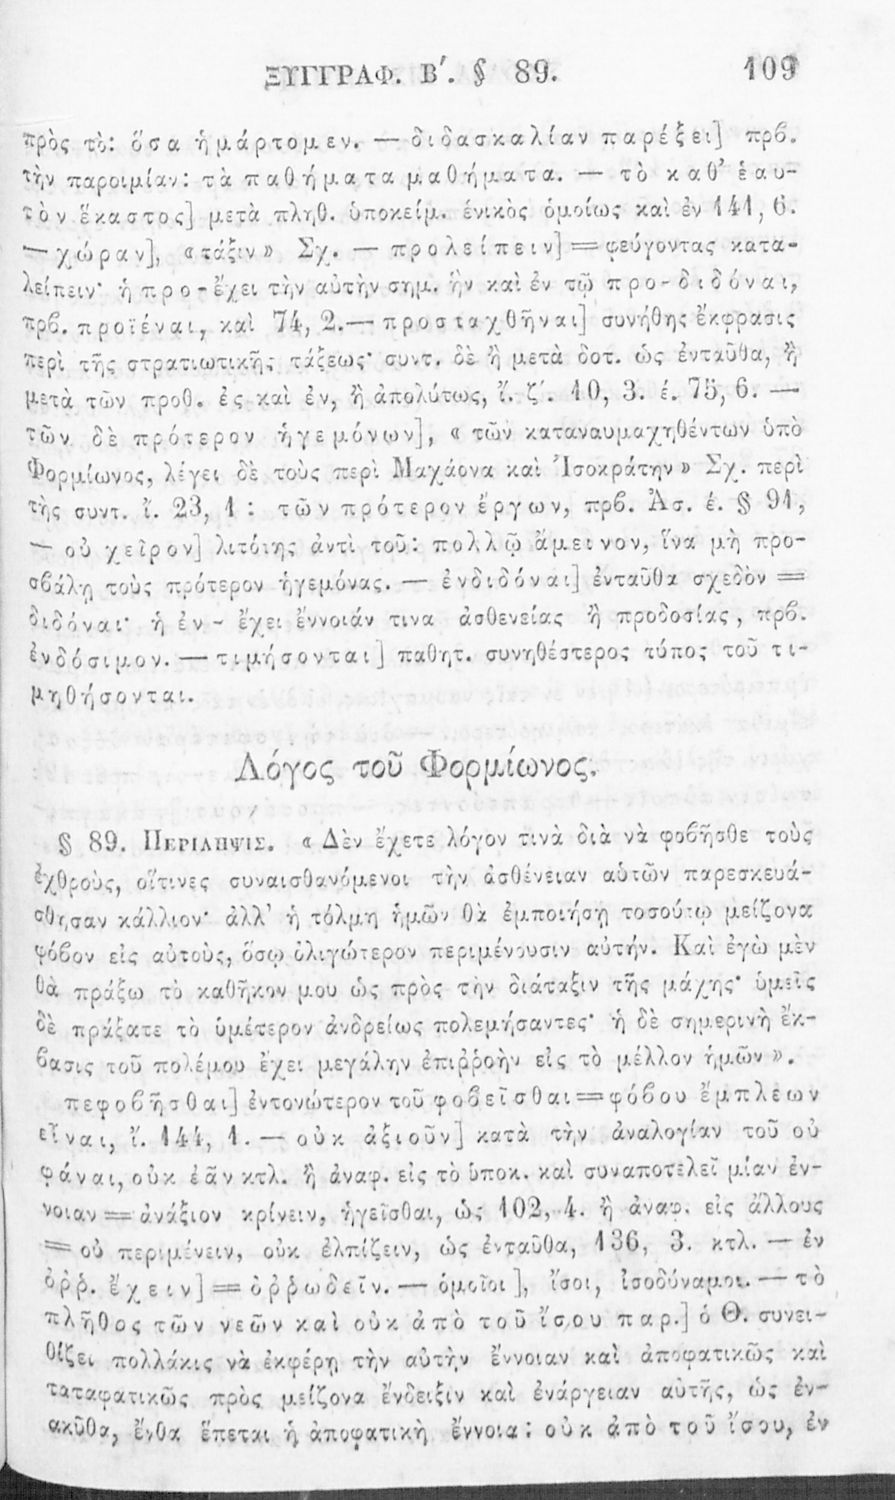 ΞΥΓΓΡΑΦ. Β΄. § 89. 109
πρὸς τὸ: ὅσα ἡμάρτομεν. — διδασκαλίαν παρέξει] πρβ.
τὴν παροιμίαν: τὰ παθήματα μαθήματα. — τὸ καθ’ ἑαυ-
τὸν ἕκαστος] μετὰ πληθ. ὑποκείμ. ἑνικὸς ὁμοίως καὶ ἐν 141, 6.
— χώραν], «τάξιν» Σχ. — προλείπειν] = φεύγοντας κατα-
λείπειν· ἡ προ- ἔχει τὴν αὐτὴν σημ. ἣν καὶ ἐν τῷ προ-διδόναι,
πρβ. προϊέναι, καὶ 74, 2.— προσταχθῆναι] συνήθης ἔκφρασις
περὶ τῆς στρατιωτικῆς τάξεως· συντ. δὲ ἢ μετὰ δοτ. ὡς ἐνταῦθα, ἢ
μετὰ τῶν προθ. ἐς καὶ ἐν, ἢ ἀπολύτως, ἴ. ζ΄. 10, 3. έ. 75, 6. —
τῶν δὲ πρότερον ἡγεμόνων], « τῶν καταναυμαχηθέντων ὑπὸ
Φορμίωνος, λέγει δὲ τοὺς περὶ Μαχάονα καὶ Ἰσοκράτην» Σχ. περὶ
τῆς συντ. ἴ. 23, 1 : τῶν πρότερον ἔργων, πρβ. Ἀσ. έ. § 91,
— οὐ χεῖρον] λιτότης ἀντὶ τοῦ: πολλῷ ἄμεινον, ἵνα μὴ προ-
σβάλῃ τοὺς πρότερον ἡγεμόνας. — ἐνδιδόναι] ἐνταῦθα σχεδὸν =
διδόναι· ἡ ἐν- ἔχει ἔννοιάν τινα ἀσθενείας ἢ προδοσίας, πρβ.
ἐνδόσιμον. — τιμήσονται] παθητ. συνηθέστερος τύπος τοῦ τι-
μηθήσονται.
Λόγος τοῦ Φορμίωνος.
§ 89. ΠΕΡΙΛΗΨΙΣ. « Δὲν ἔχετε λόγον τινὰ διὰ νὰ φοβῆσθε τοὺς
ἐχθροὺς, οἵτινες συναισθανόμενοι τὴν ἀσθένειαν αὑτῶν παρεσκευά-
σθησαν κάλλιον· ἀλλ’ ἡ τόλμη ἡμῶν θὰ ἐμποιήσῃ τοσούτῳ μείζονα
φόβον εἰς αὐτοὺς, ὅσῳ ὀλιγώτερον περιμένουσιν αὐτήν. Καὶ ἐγὼ μὲν
θὰ πράξω τὸ καθῆκον μου ὡς πρὸς τὴν διάταξιν τῆς μάχης· ὑμεῖς
δὲ πράξατε τὸ ὑμέτερον ἀνδρείως πολεμήσαντες· ἡ δὲ σημερινὴ ἔκ-
βασις τοῦ πολέμου ἔχει μεγάλην ἐπιῤῥοὴν εἰς τὸ μέλλον ἡμῶν ».
πεφοβῆσθαι] ἐντονώτερον τοῦ φοβεῖσθαι = φόβου ἔμπλεων
εἶναι, ἴ. 144, 1. — οὐκ ἀξιοῦν] κατὰ τὴν ἀναλογίαν τοῦ οὐ
φάναι, οὐκ ἐᾶν κτλ. ἢ ἀναφ. εἰς τὸ ὑποκ. καὶ συναποτελεῖ μίαν ἔν-
νοιαν = ἀνάξιον κρίνειν, ἡγεῖσθαι, ὡς 102, 4. ἢ ἀναφ. εἰς ἄλλους
= οὐ περιμένειν, οὐκ ἐλπίζειν, ὡς ἐνταῦθα, 136, 3. κτλ. — ἐν
ὀῤῥ. ἔχειν] = ὀῤῥωδεῖν. — ὁμοῖοι], ἴσοι, ἰσοδύναμοι. — τὸ
πλῆθος τῶν νεῶν καὶ οὐκ ἀπὸ τοῦ ἴσου παρ.] ὁ Θ. συνει-
θίζει πολλάκις νὰ ἐκφέρῃ τὴν αὐτὴν ἔννοιαν καὶ ἀποφατικῶς καὶ
ταταφατικῶς πρὸς μείζονα ἔνδειξιν καὶ ἐνάργειαν αὐτῆς, ὡς ἐν-
ακῦθα, ἔνθα ἕπεται ἡ ἀποφατικὴ ἔννοια: οὐκ ἀπὸ τοῦ ἴσου, ἐν